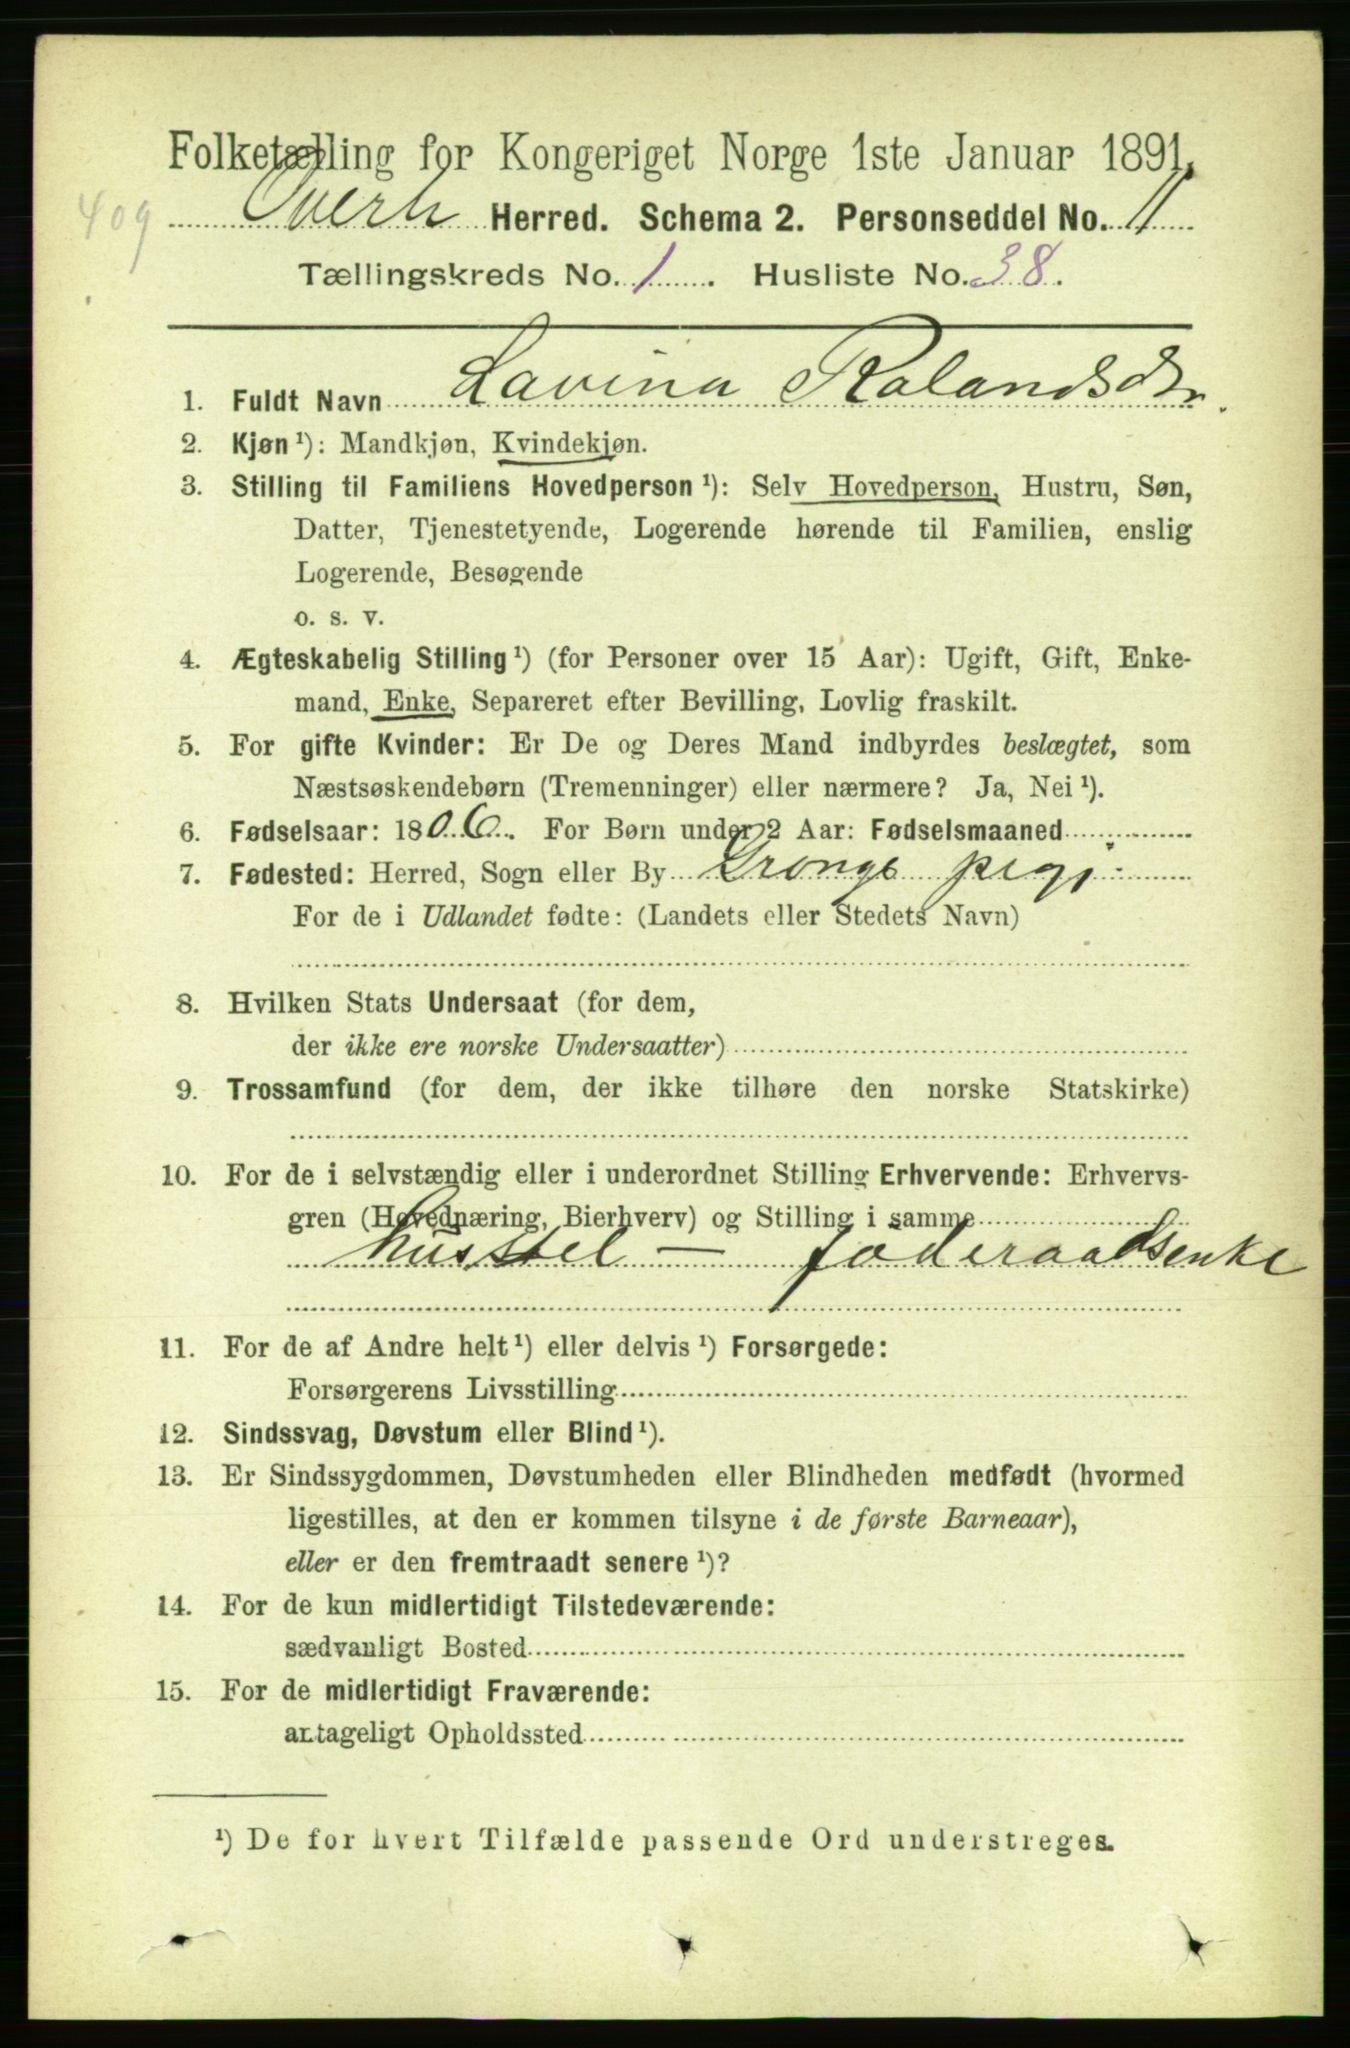 Folketælling for Kongeriget Norge 1ste Januar 1891.
409
Overh Herred. Schema 2. Personseddel No. 11
Tællingskreds No. 1. Husliste No. 38.
1. Fuldt Navn Lavina Rolandsdtr.
2. Kjøn ¹): Mandkjøn, Kvindekjøn.
3. Stilling til Familiens Hovedperson ¹): Selv Hovedperson, Hustru, Søn,
Datter, Tjenestetyende, Logerende hørende til Familien, enslig
Logerende, Besøgende
o. s. v.
4. Ægteskabelig Stilling ¹) (for Personer over 15 Aar): Ugift, Gift, Enke-
mand, Enke, Separeret efter Bevilling, Lovlig fraskilt.
5. For gifte Kvinder: Er De og Deres Mand indbyrdes beslægtet, som
Næstsøskendebørn (Tremenninger) eller nærmere? Ja, Nei ¹).
6. Fødselsaar: 1806. For Børn under 2 Aar: Fødselsmaaned
7. Fødested: Herred, Sogn eller By Grongs prgj.
For de i Udlandet fødte: (Landets eller Stedets Navn)
8. Hvilken Stats Undersaat (for dem,
der ikke ere norske Undersaatter)
9. Trossamfund (for dem, der ikke tilhøre den norske Statskirke)
10. For de i selvstændig eller i underordnet Stilling Erhvervende: Erhvervs-
gren (Hovednæring, Bierhverv) og Stilling i samme
husstel — föderaadsenke
11. For de af Andre helt ¹) eller delvis ¹) Forsørgede:
Forsørgerens Livsstilling
12. Sindssvag, Døvstum eller Blind ¹).
13. Er Sindssygdommen, Døvstumheden eller Blindheden medfødt (hvormed
ligestilles, at den er kommen tilsyne i de første Barneaar),
eller er den fremtraadt senere ¹)?
14. For de kun midlertidigt Tilstedeværende:
sædvanligt Bosted
15. For de midlertidigt Fraværende:
antageligt Opholdssted
¹) De for hvert Tilfælde passende Ord understreges.